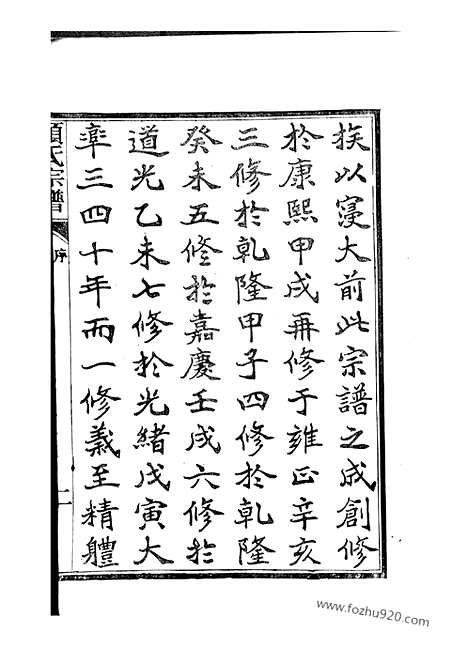 族以寖大前此宗譜之成創修
於康熙甲戌再修于雍正辛亥
三修於乾隆甲子四修於乾隆
癸未五修於嘉慶壬戌六修於
道光乙未七修於光緒戊寅大
率三四十年而一修義至精體
氏宗譜
序
www.fozhu920.com